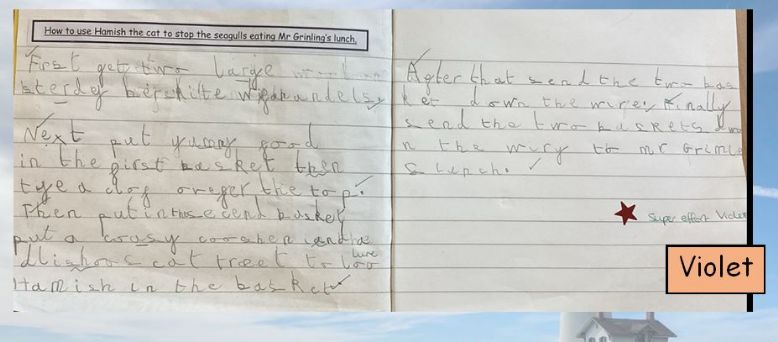 How to use Hamish the cat to stop the seagulls eating Mr Grinling's lunch.
First get two large
sterdey
Next put yumny food
in the first basket then
tye a clof oveger the top.
Then put in the secend basket
put a
dlishous cat treet to loo
lure
Hamish in the basket
After that send the two bas
ket down the wire. Finally
send the two baskets dow
n the to mr Grinling
s lunch.
Super effort Violet
Violet